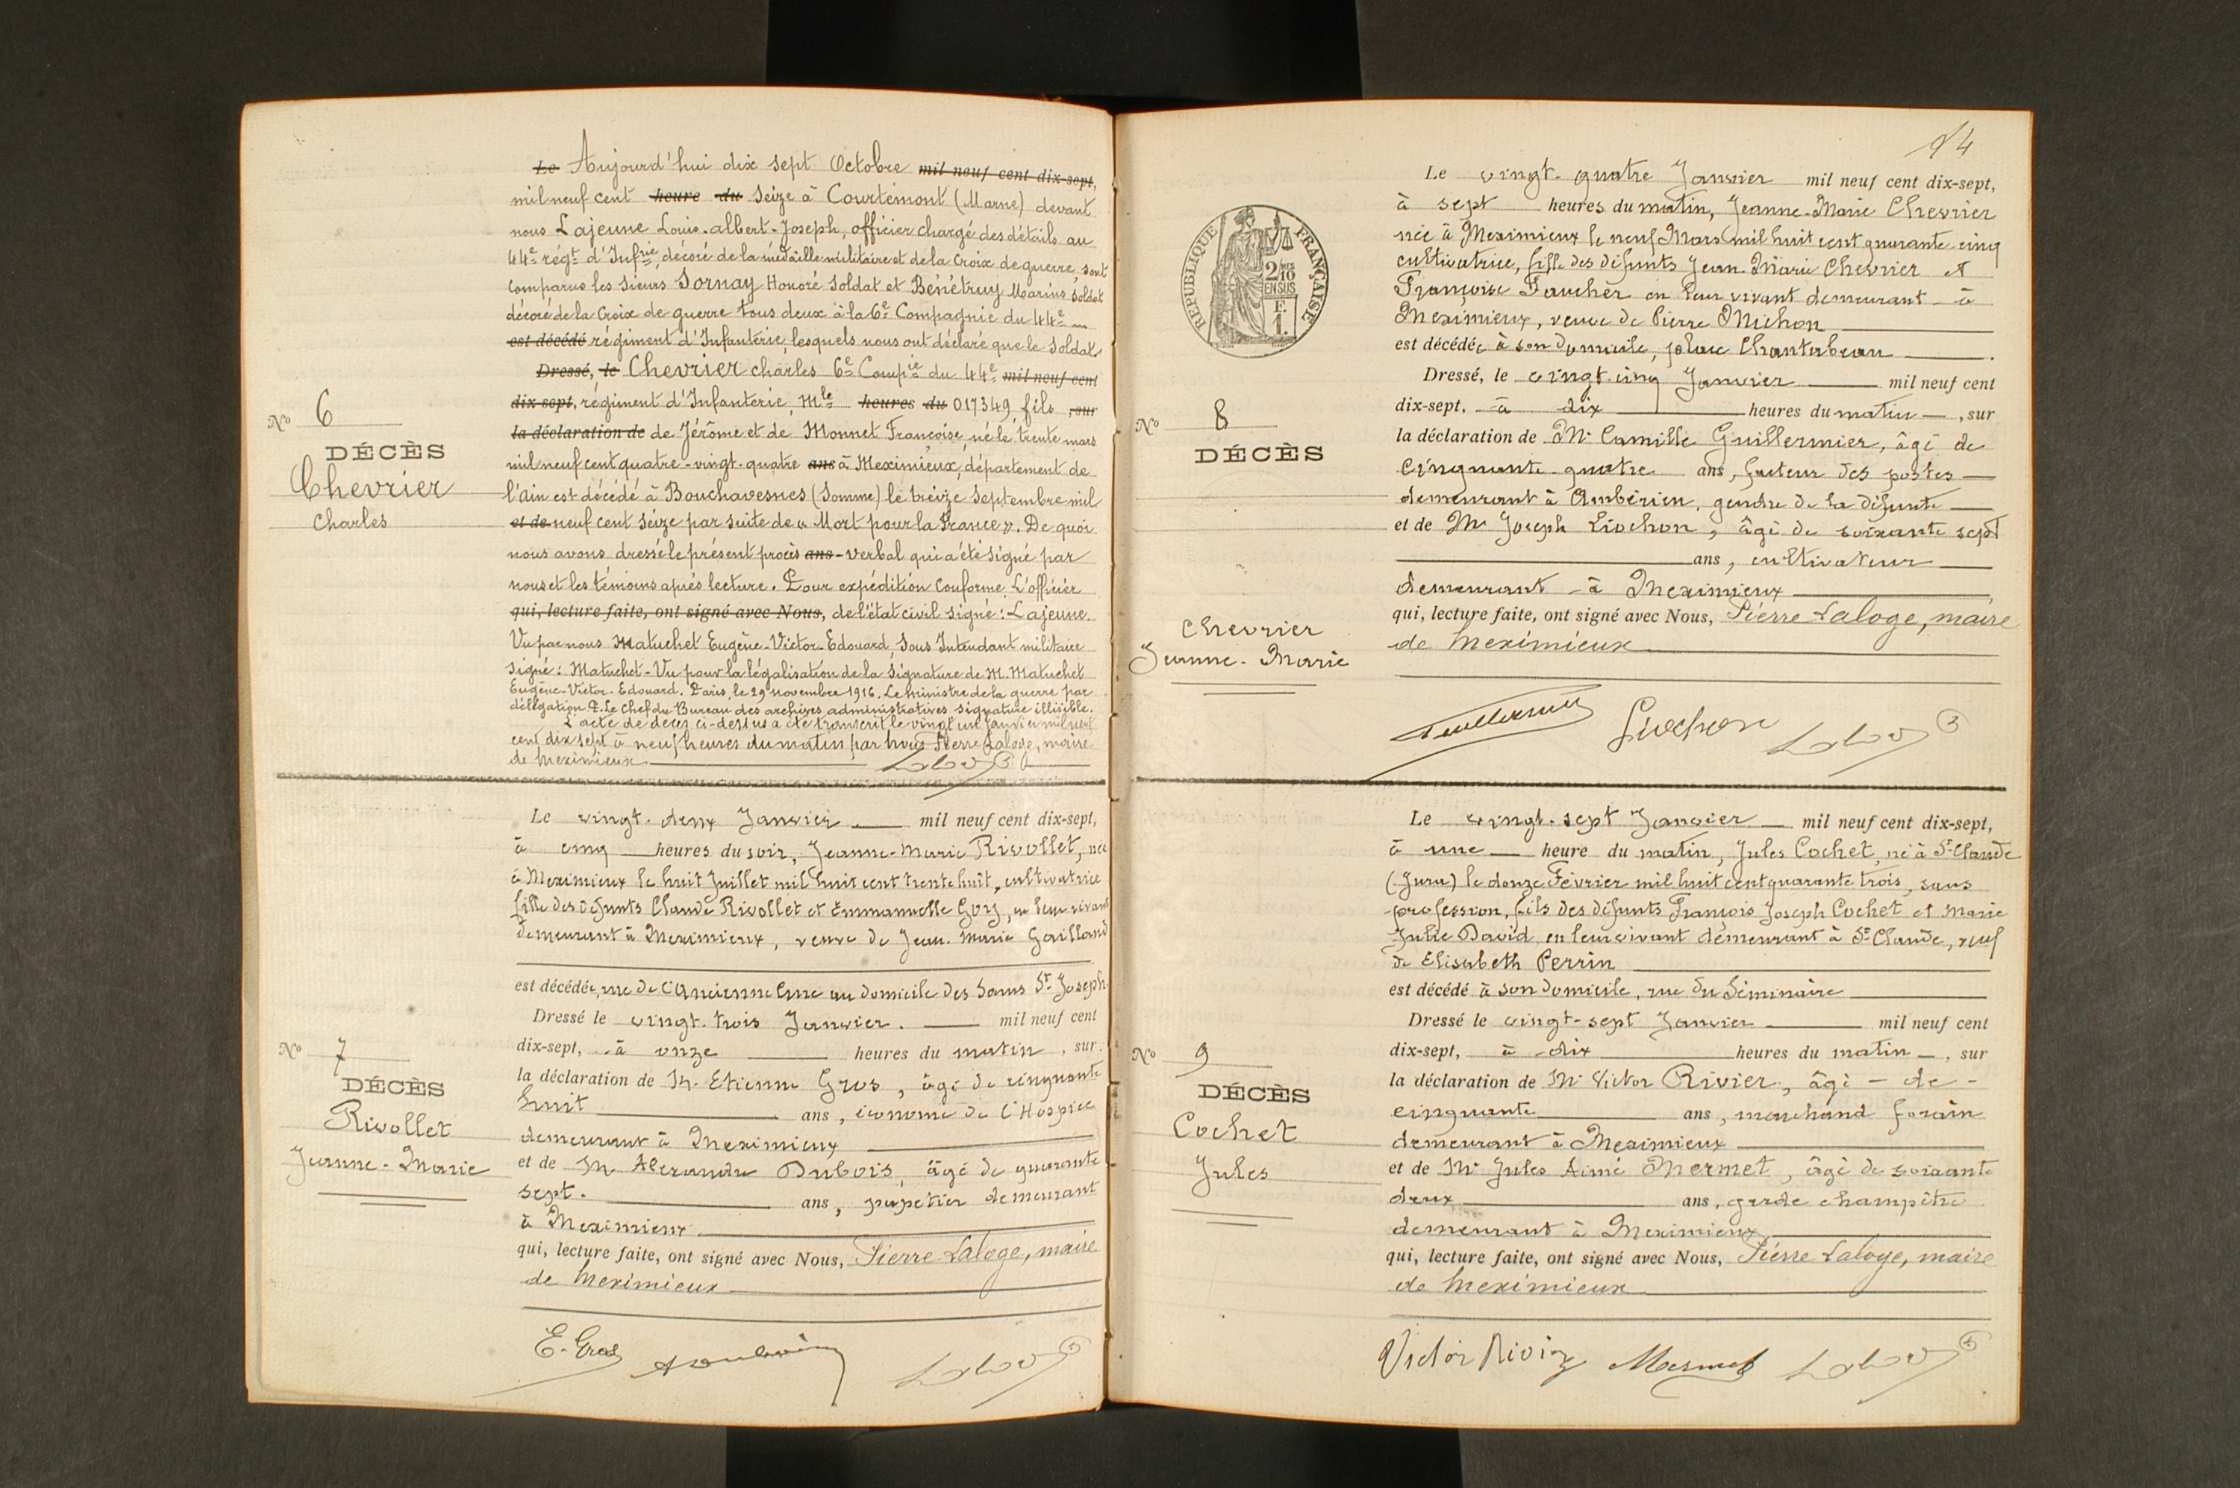 Le Aujourd'hui dix sept Octobre mil neuf cent dix-sept,
mil neuf cent heure du seize à Courtémont (Marne) devant
nous Lajeune Louis-albert-Joseph, officier chargé des détails au
44e régt d'Infrie, décoré de la médaille militaire et de la Croix de guerre, sont
comparus les sieurs Sornay Honoré soldat et Bénétruy Marius, soldat
décoré de la Croix de guerre tous deux à la 6e Compagnie du 44e
est décédé régiment d'Infanterie, lesquels nous ont déclaré que le soldat
Dressé, le Chevrier charles 6e Compie du 44e mil neuf cent
dix-sept, régiment d'Infanterie, Mle heures du 017349, fils , sur
la déclaration de de Jérôme et de Monnet Françoise, né le trente mars
mil neuf cent quatre-vingt-quatre ans à Meximieux, département de
l'ain est décédé à Bouchavesnes (Somme) le treize Septembre mil
et de neuf cent seize par suite de « Mort pour la France ». De quoi
nous avons dressé le présent procès ans-verbal qui a été signé par
nous et les témoins après lecture. Pour expédition conforme, L'officier
qui, lecture faite, ont signé avec Nous, de l'état civil signé : Lajeune.
Vu par nous Matuchet Eugène-Victor-Edouard, Sous Intendant militaire
signé : Matuchet - Vu pour la légalisation de la signature de M. Matuchet
Eugène-Victor-Edouard. Paris, le 29 novembre 1916. Le ministre de la guerre par
délégation P. Le chef du Bureau des archives administratives signature illisible.
L'acte de décès ci-dessus a été transcrit le vingt un janvier mil neuf
cent dix sept à neuf heures du matin par nous Pierre Laloge, maire
de Meximieux
No 6
DÉCÈS
Chevrier
Charles
Le vingt-deux Janvier mil neuf cent dix-sept,
à cinq heures du soir, Jeanne-Marie Rivollet, née
à Meximieux le huit Juillet mil huit cent trente huit, cultivatrice
fille des défunts Claude Rivollet et Emmanuelle Goy, en leur vivant
demeurant à Meximieux, veuve de Jean-Marie Gailland
est décédée, rue de l'Ancienne Cure au domicile des Sœurs St Joseph
Dressé le vingt-trois Janvier. mil neuf cent
dix-sept, à onze heures du matin, sur
la déclaration de Mr Etienne Gros, âgé de cinquante
huit ans, économe de l'Hospice
demeurant à Meximieux
et de Mr Alexandre Dubois, âgé de quarante
sept. ans, papetier demeurant
à Meximieux
qui, lecture faite, ont signé avec Nous, Pierre Laloge, maire
de Meximieux
E. Gros
No 7
DÉCÈS
Rivollet
Jeanne-Marie
RÉPUBLIQUE FRANÇAISE
2/10
EN SUS
F.
1.
Le vingt-quatre Janvier mil neuf cent dix-sept,
à sept heures du matin, Jeanne-Marie Chevrier
née à Meximieux le neuf Mars mil huit cent quarante-cinq
cultivatrice, fille des défunts Jean-Marie Chevrier et
Françoise Faucher en leur vivant demeurant à
Meximieux, veuve de Pierre Michon
est décédée à son domicile, place Chantabeau.
Dressé, le vingt-cinq Janvier mil neuf cent
dix-sept, à dix heures du matin, sur
la déclaration de Mr Camille Guillermier, âgé de
cinquante-quatre ans, facteur des postes
demeurant à Ambérieu, gendre de la défunte
et de Mr Joseph Liochon, âgé de soixante sept
ans, cultivateur
demeurant à Meximieux
qui, lecture faite, ont signé avec Nous, Pierre Laloge, maire
de Meximieux
Liochon
No 8
DÉCÈS
Chevrier
Jeanne-Marie
Le vingt-sept Janvier mil neuf cent dix-sept,
à une heure du matin, Jules Cochet, né à St-Claude
(Jura) le douze Février mil huit cent quarante trois, sans
profession, fils des défunts François Joseph Cochet et Marie
Julie David, en leur vivant demeurant à St-Claude, veuf
de Elisabeth Perrin
est décédé à son domicile, rue du Séminaire
Dressé le vingt-sept Janvier mil neuf cent
dix-sept, à dix heures du matin, sur
la déclaration de Mr Victor Rivier, âgé - de -
cinquante ans, marchand forain
demeurant à Meximieux
et de Mr Jules Aimé Mermet, âgé de soixante
deux ans, garde champêtre
demeurant à Meximieux
qui, lecture faite, ont signé avec Nous, Pierre Laloge, maire
de Meximieux
Victor Rivier Mermet
No 9
DÉCÈS
Cochet
Jules